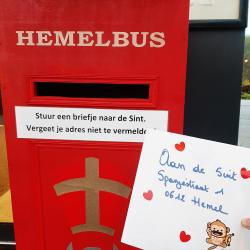 HEMELBUS
Stuur een briefje naar de Sint.
Vergeet je adres niet te vermelde
Aan de Sint
Spanjestraat 1
0612 Hemel